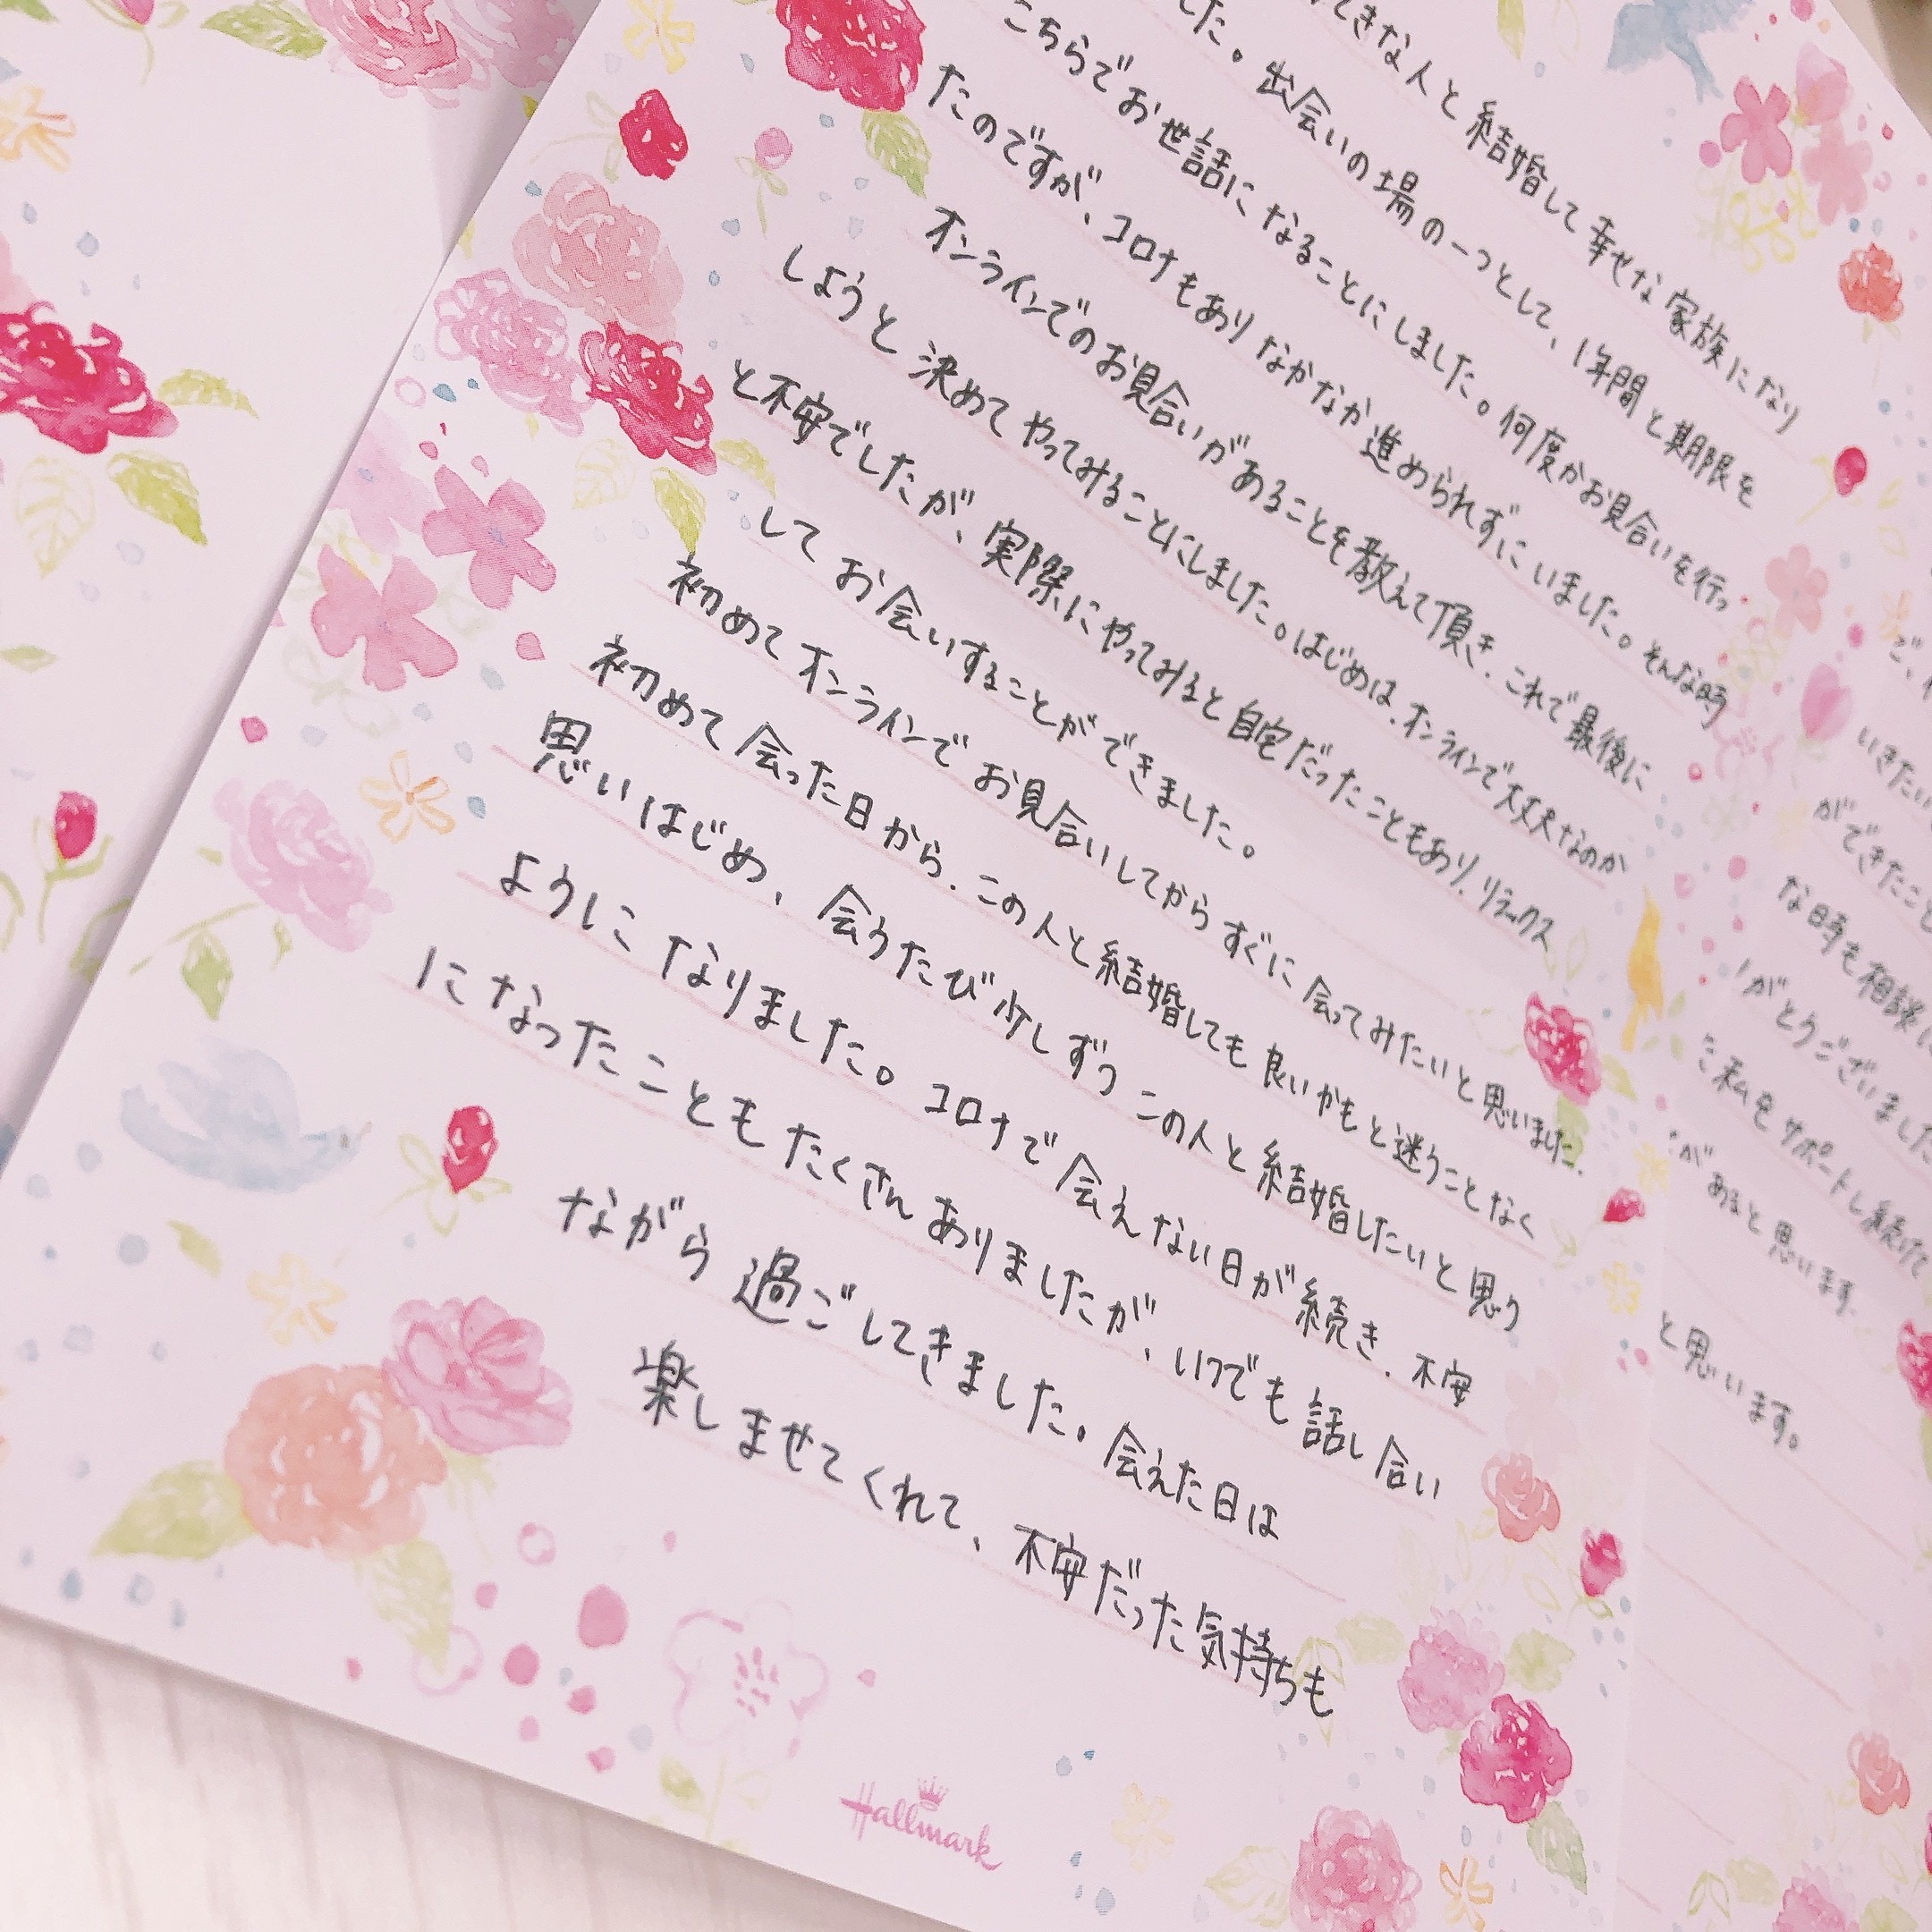 てきな人と結婚して幸せな家族になり
した。出会いの場の一つとして、1年間と期限を
こちらでお世話になることにしました。何度かお見合いを行っ
たのですが、コロナもありなかなか進められずにいました。そんな時
オンラインでのお見合いがあることを教えて頂き、これで最後に
しようと決めてやってみることにしました。はじめは、オンラインで大丈夫なのか
と不安でしたが、実際にやってみると自宅だったこともあり、リラックス
してお会いすることができました。
初めてオンラインでお見合いしてからすぐに会ってみたいと思いました。
初めて会った日から、この人と結婚しても良いかもと迷うことなく
思いはじめ、会うたび少しずつこの人と結婚したいと思う
ようになりました。コロナで会えない日が続き、不安
になったこともたくさんありましたが、いつでも話し合い
ながら過ごしてきました。会えた日は
楽しませてくれて、不安だった気持ちも
Hallmark
いきたい
ができたこと
な時も相談
がとうございました
私をサポートし続けて
があると思います。
と思います。